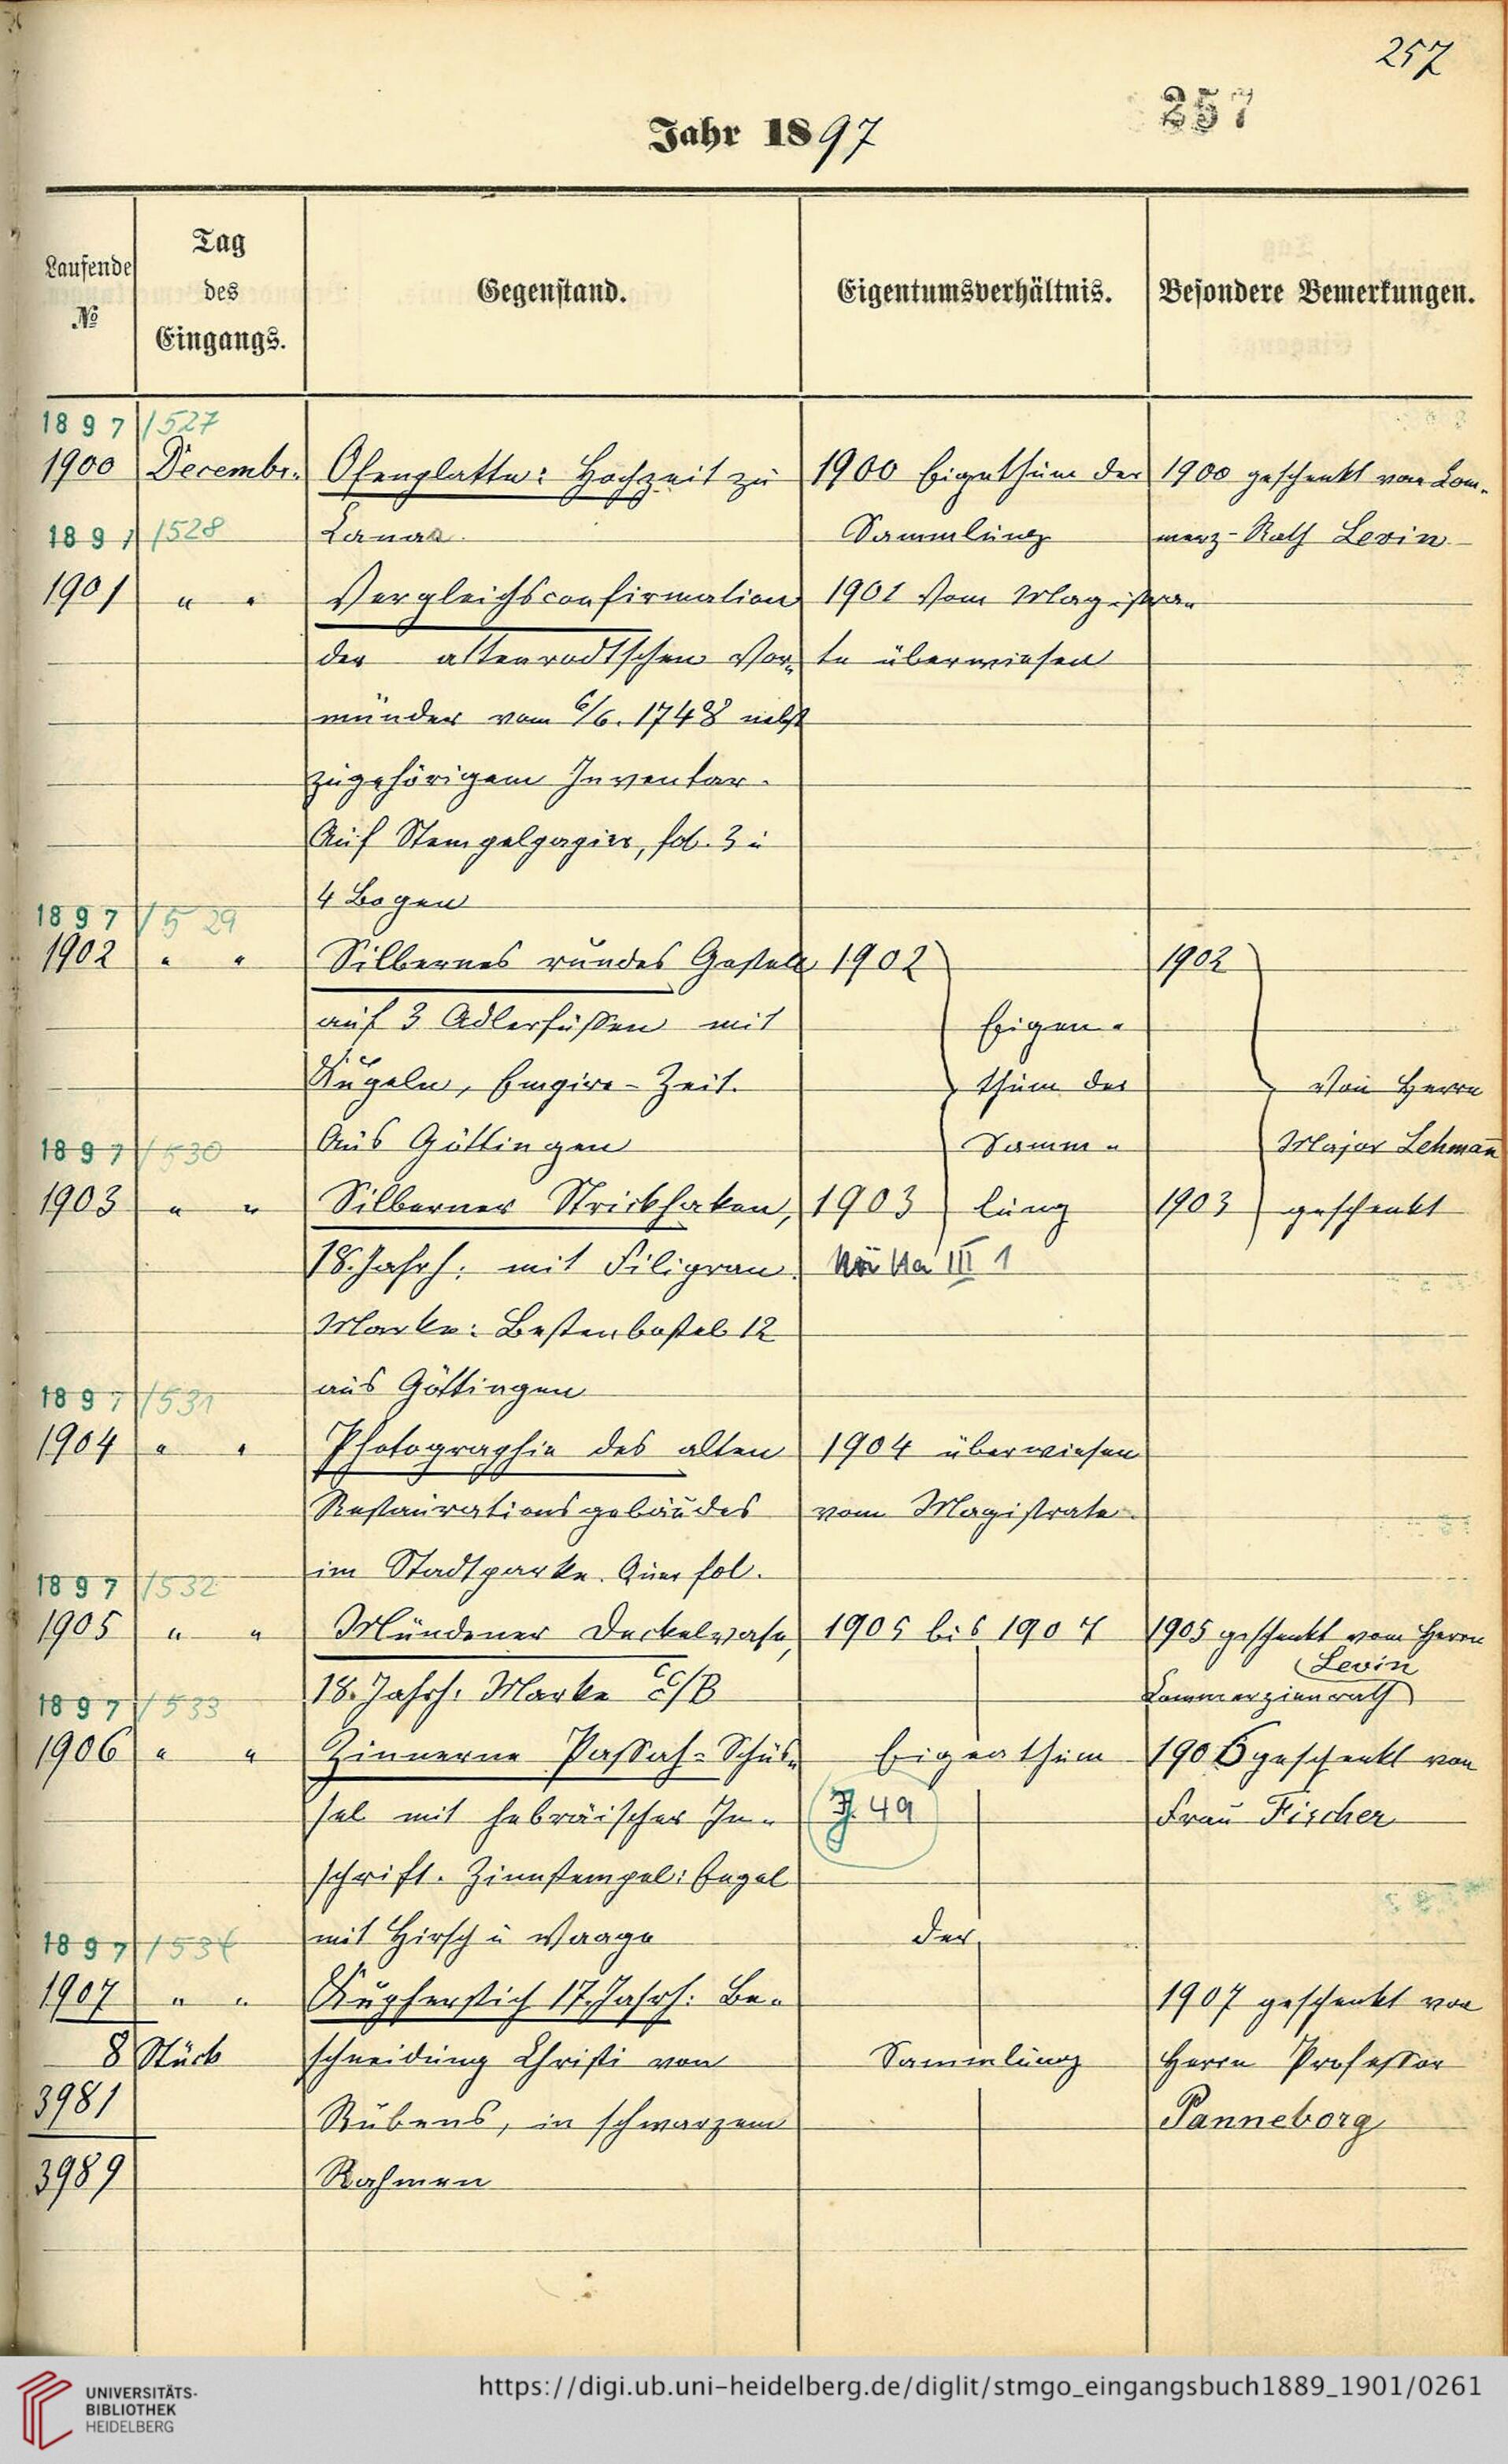 257
257
Jahr 1897
Laufende №
Tag des Eingangs.
Gegenstand.
Eigentumsverhältnis.
Besondere Bemerkungen.
1897/527
1900 Decembr. Ofenplatte: Hochzeit zu 1900 Eigenthum der 1900 geschenkt von Com-
1897/528 Canaa. Sammlung merz-Rath Levin
1901 " " Vergleichsconfirmation 1901 Vom Magistra-
der altenrodtschen Vor- te überwiesen
münder vom 6/6. 1748 nebst
zugehörigem Inventar.
Auf Stempelpapier, fol. 3 u
4 Bogen
1897/529
1902 " " Silbernes rundes Gestell 1902 1902
auf 3 Adlerfüßen mit Eigen-
Kugeln, Empire-Zeit. thum der Von Herrn
1897/530 Aus Göttingen Samm- Major Lehmann̄
1903 " " Silberner Strickhaken, 1903 lung 1903 geschenkt
18. Jahrh. mit Filigran. III 1
Marke: Bestenbostel 12
1897/531 aus Göttingen
1904 " " Photographie des alten 1904 überwiesen
Restaurationsgebäudes vom Magistrate
im Stadtparke. Quer fol.
1897/532
1905 " " Mündener Deckelvase, 1905 bis 1907 1905 geschenkt vom Herrn
Levin
18. Jahrh. Marke Commerzienrath
1897/533
1906 " " Zinnerne Passah-Schüs- Eigenthum 1906 geschenkt von
sel mit hebräischer In- J. 49 Frau Fischer
schrift. Zinnstempel: Engel
1897/534 mit Hirsch u Waage der
1907 " " Kupferstich 17. Jahrh: Be- 1907 geschenkt von
8 Stück schneidung Christi von Sammlung Herrn Professor
3981 Rubens, in schwarzem Panneborg
3989 Rahmen
UNIVERSITÄTS-
BIBLIOTHEK
HEIDELBERG
https://digi.ub.uni-heidelberg.de/diglit/stmgo_eingangsbuch1889_1901/0261